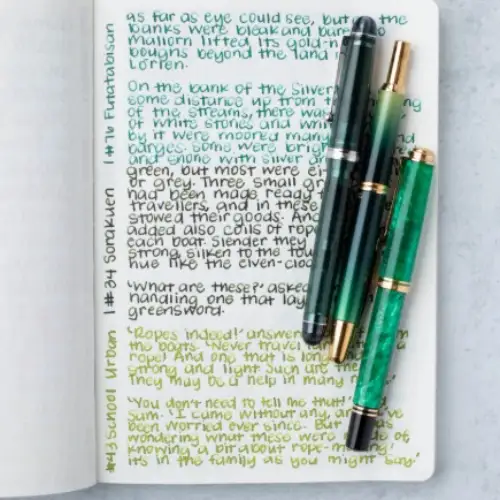 as far as eye could see, but on the
banks were bleak and bare
mallorn lifted its gold-h
boughs beyond the land
Lorien.
On the bank of the Silver
some distance up from the meeting
of the streams, there was
of white stones and whi
by it were moored many
barges. Some were brigh
and shone with silver an
green, but most were ei
or grey. Three small gr
had been made ready
travellers, and in these
stowed their goods. And
added also coils of rope
each boat. Slender they
strong, silken to the tou
hue like the elven-cloa
'What are these?' asked
handling one that lay
greensword.
'Ropes indeed!' answered
the boats. 'Never travel
rope! And one that is long
strong and light. Such are these.
They may be a help in many
'You don't need to tell me that!'
Sam. 'I came without any, and I've
been worried ever since. But I was
wondering what these were made of
knowing a bit about rope-making:
it's in the family as you might say.'
#43 School Urban | #24 Sorakuen | #76 Futatabisan